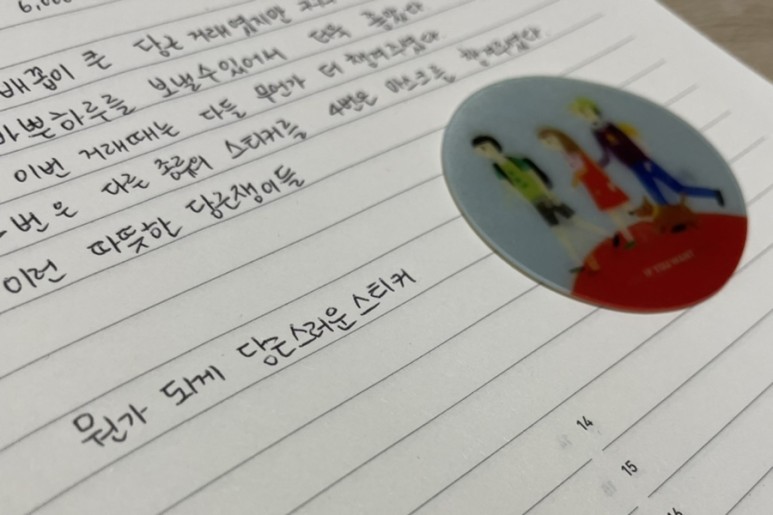 6,000
배꼽이 큰 당근거래였지만
바쁜하루를 보낼수있어서 더욱 좋았다
이번 거래때는 다들 무언가 더 챙겨주셨다
번은 다른 종류의 스티커를 4번은 마스크를 챙겨주셨다.
이런 따뜻한 당근쟁이들
뭔가 되게 당근스러운 스티커
IF YOU WANT
14
15
16